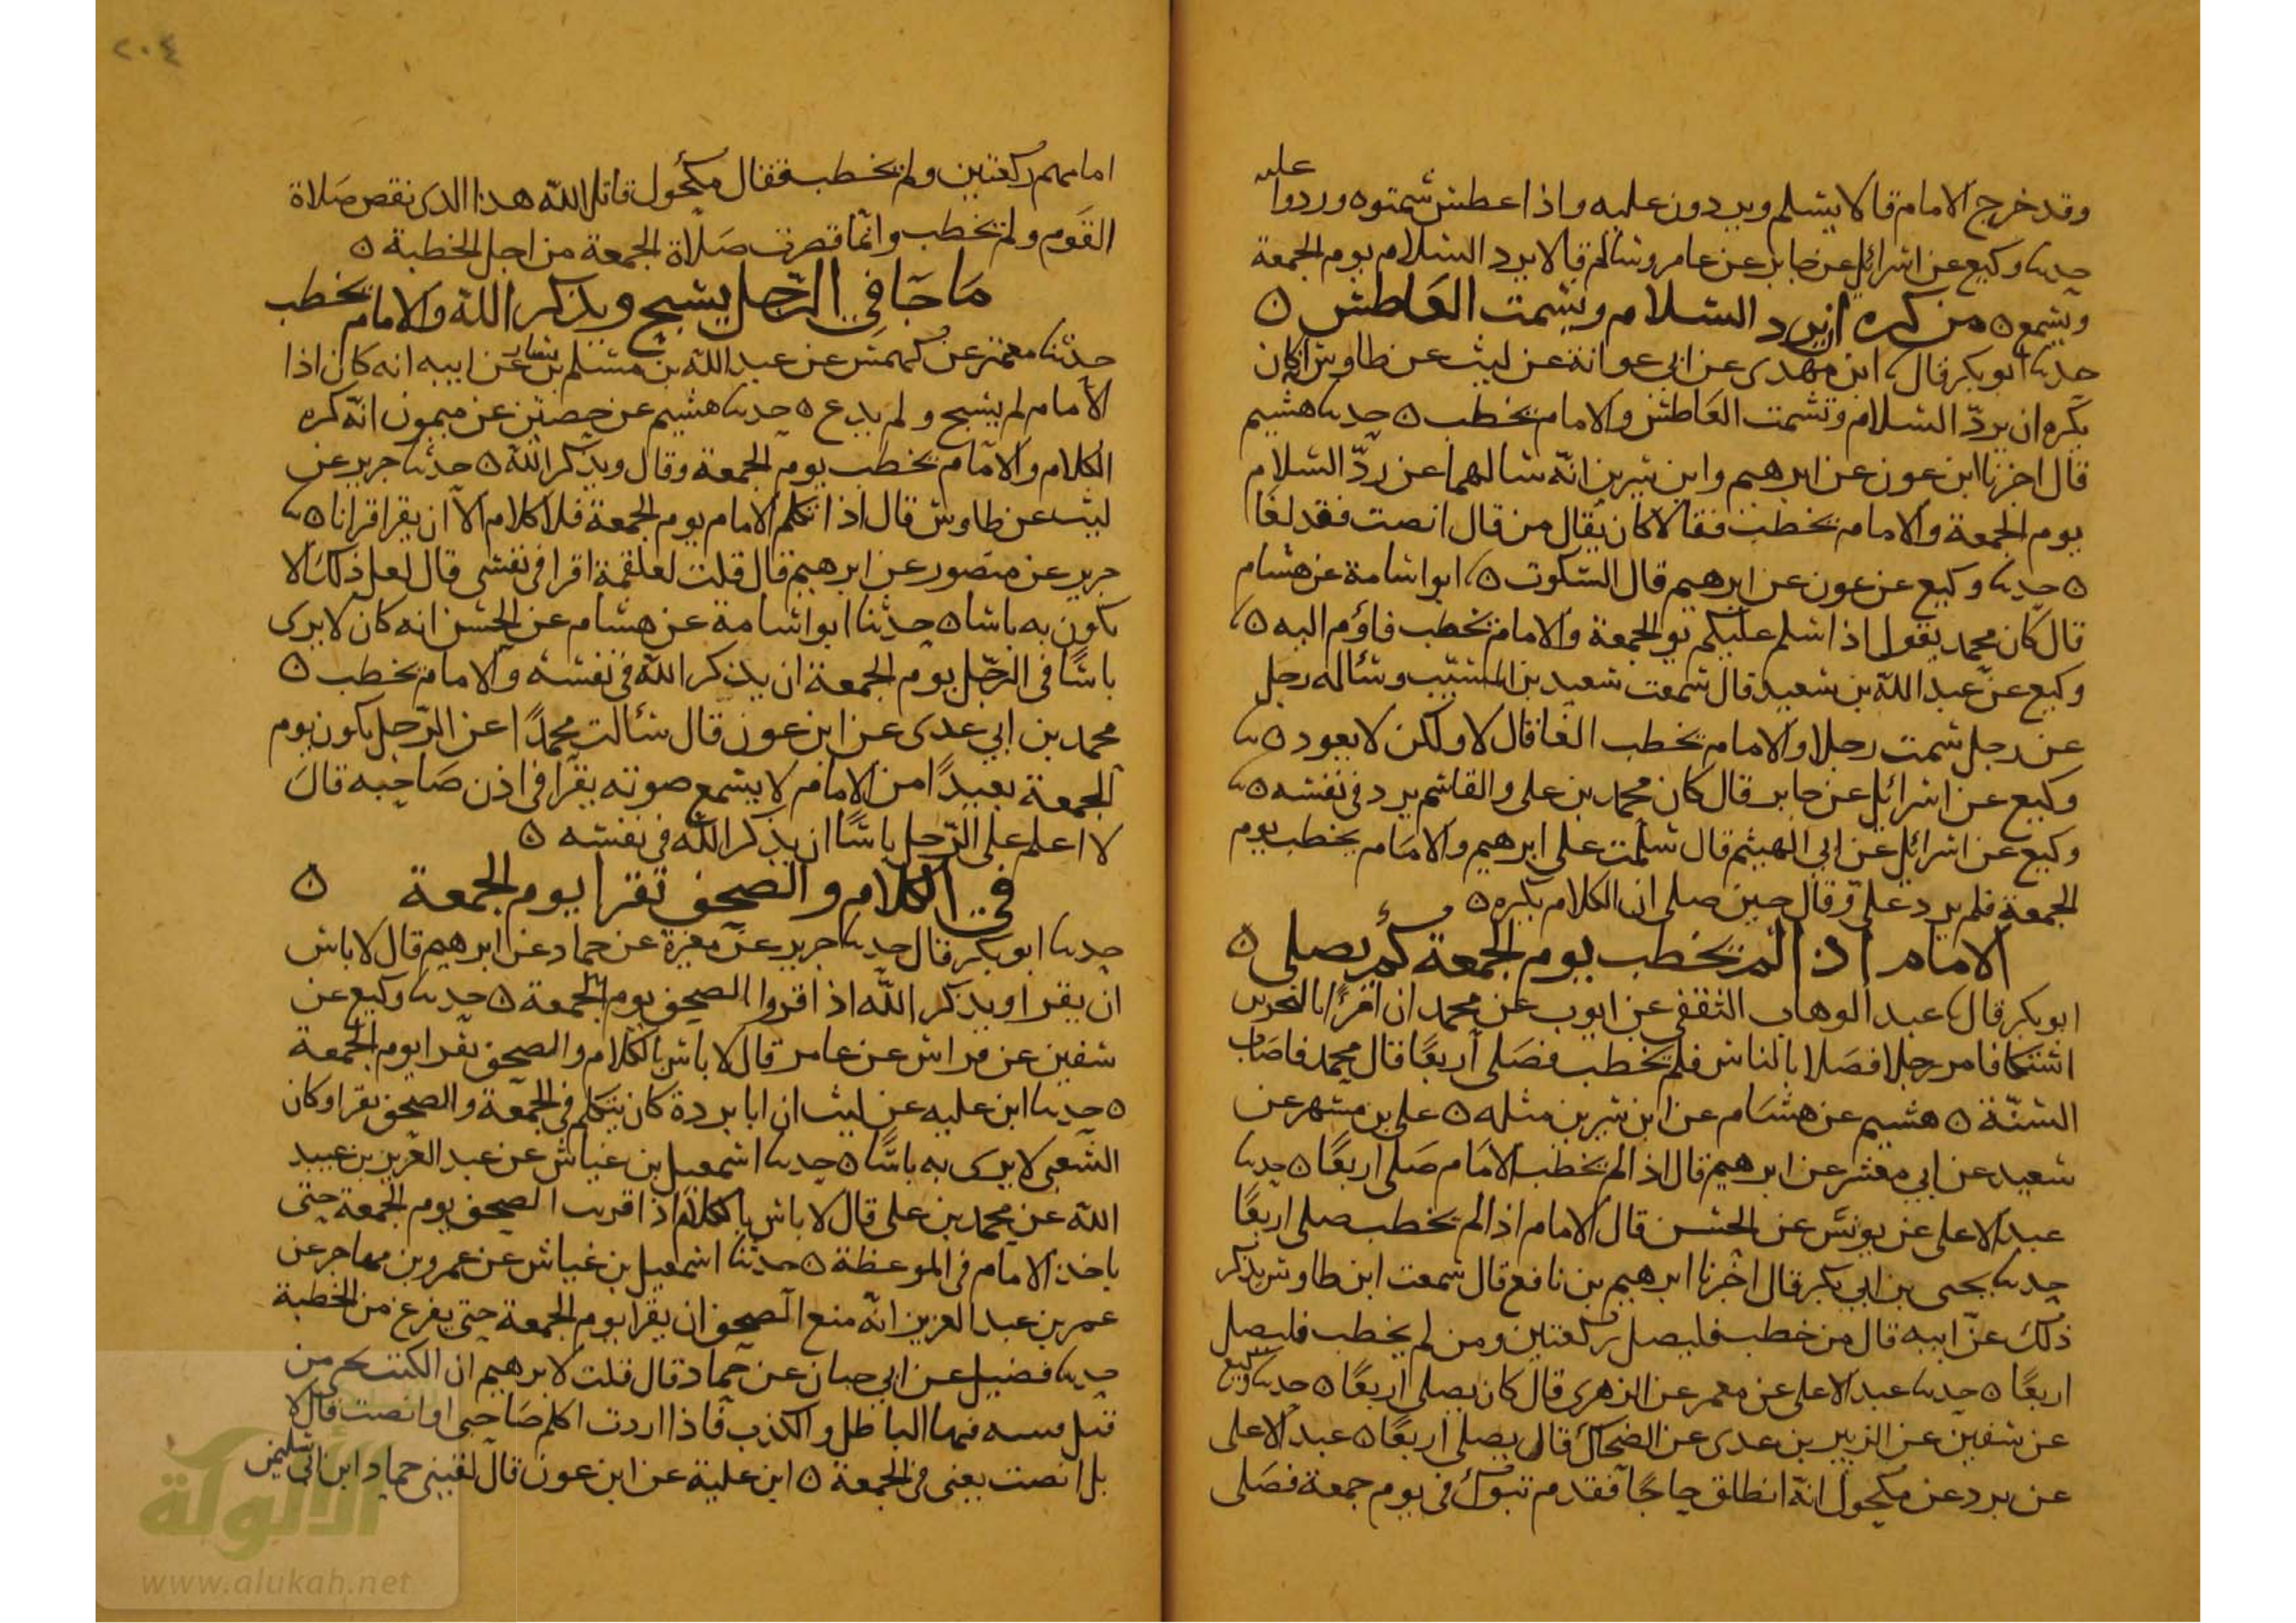 عليه
وقد خرج الامام قالا يسلم ويردون عليه واذا عطس شمتوه وردوا
حدثنا وكيع عن اسرائيل عن جابر عن عامر وسالم قالا يرد السلام يوم الجمعة
ويسمع ه من كره ان يرد السلام ويشمت العاطس ه
حدثنا ابو بكر قال ابن مهدي عن ابي عوانة عن ليث عن طاوس انه كان
يكره ان يردّ السلام وتشمت العاطس والامام يخطب ه حدثنا هشيم
قال اخبرنا ابن عون عن ابرهيم وابن سيرين انّه سالهما عن ردّ السلام
يوم الجمعة والامام يخطب فقالا كان يقال من قال انصت فقد لغا
ه حدثنا وكيع عن عون عن ابرهيم قال السكوت ه ابو اسامة عن هشام
قال كان محمد يقول اذا سلم عليكم يو الجمعة والامام يخطب فاؤم اليه ه
وكيع عن عبد اللّه بن سعيد قال سمعت سعيد بن المسيّب وسأله رجل
عن رجل شمت رجلا والامام يخطب الغا قال لا ولكن لا يعود ه
وكيع عن اسرائيل عن جابر قال كان محمد بن على والقاسم يرد في نفسه ه
وكيع عن اسرائيل عن ابي الهيثم قال سلّمت على ابرهيم والامام يخطب يوم
الجمعة فلم يرد علىّ وقال حين صلى ان الكلام يكره ه
الامام اذا لم يخطب يوم الجمعة كم يصلى ه
ابو بكر قال عبد الوهاب الثقفي عن ايوب عن محمد ان
اشتكا فامر رجلا فصلا بالناس فلم يخطب فصلى أربعًا قال محمد فاصاب
السنّة ه هشيم عن هشام عن ابن سيرين مثله ه على بن مسهر عن
سعيد عن ابي معشر عن ابرهيم قال اذا لم يخطب الامام صلى اربعًا ه حدثنا
عبد الاعلى عن يونس عن الحسن قال الامام اذا لم يخطب صلى اربعًا
حدثنا يحيى بن ابي بكر قال اخبرنا ابرهيم بن نافع قال سمعت ابن طاوس يذكر
ذلك عن ابيه قال من خطب فليصل ركعتين ومن لم يخطب فليصل
اربعًا ه حدثنا عبد الاعلى عن معمر عن الزهرى قال كان يصلى أربعًا ه حدثنا وكيع
عن سفين عن الزبير بن عدى عن الضحاك قال يصلى اربعًا ه عبد الاعلى
عن برد عن مكحول انّه انطلق حاجًا فقدم تبوك في يوم جمعة فصلى
٢٠٤
امامهم ركعتين ولم يخطب فقال مكحول قاتل اللّه هذا الذى نقص صلاة
القوم ولم يخطب وانّما قصرت صلاة الجمعة من اجل الخطبة ه
ما جا في الرّجل يسبح ويذكر اللّه والامام يخطب
حدثنا معتمر عن كهمس عن عبد اللّه بن مسلم بن يسار عن ابيه انه كان اذا
الامام لم يسبح ولم يدع ه حدثنا هشيم عن حصين عن ميمون انّه كره
الكلام والامام يخطب يوم الجمعة وقال ويذكر اللّه ه حدثنا جرير عن
ليث عن طاوس قال اذا تكلم الامام يوم الجمعة فلا كلام الا ان يقرا قرانا ه
جرير عن منصور عن ابرهيم قال قلت لعلقمة اقرا في نفسى قال لعل ذلك الا
يكون به باسا ه حدثنا ابو اسامة عن هشام عن الحسن انه كان لا يرى
باسًا في الرّجل يوم الجمعة ان يذكر اللّه في نفسه والامام يخطب ه
محمد بن ابي عدى عن ابن عون قال سألت محمدًا عن الرّجل يكون يوم
الجمعة بعيدًا من الامام لا يسمع صوته يقرا في اذن صاحبه قال
لا اعلم على الرّجل باسًا ان يذكر اللّه في نفسه ه
في الكلام والصحف تقرا يوم الجمعة ه
حدثنا ابو بكر قال حدثنا جرير عن مغيرة عن حماد عن ابرهيم قال لا باس
ان يقرا ويذكر اللّه اذا قروا الصحف يوم الجمعة ه حدثنا وكيع عن
سفين عن فراس عن عامر قال لا باس بالكلام والصحف تقرا يوم الجمعة
ه حدثنا ابن عليه عن ليث ان ابا بردة كان يتكلم في الجمعة والصحف تقرا وكان
الشعبى لا يرى به باسًا ه حدثنا اسمعيل بن عياش عن عبد العزيز بن عبيد
اللّه عن محمد بن على قال لا باس بالكلام اذا قريت الصحف يوم الجمعة حتى
ياخذ الامام في الموعظة ه حدثنا اسمعيل بن عياش عن عمرو بن مهاجر عن
عمر بن عبد العزيز انّه منع الصحف ان يقرا يوم الجمعة حتى يفرغ من الخطبة
حدثنا فضيل عن ابي حيان عن حماد قال قلت لابرهيم ان الكتب من
قبل فيها الباطل والكذب فاذا اردت اكلم صاحبى او انصت قال لا
بل انصت يعنى في الجمعة ه ابن علية عن ابن عون قال لقينى حماد ابن ابي سليمن
الألوكة
www.alukah.net